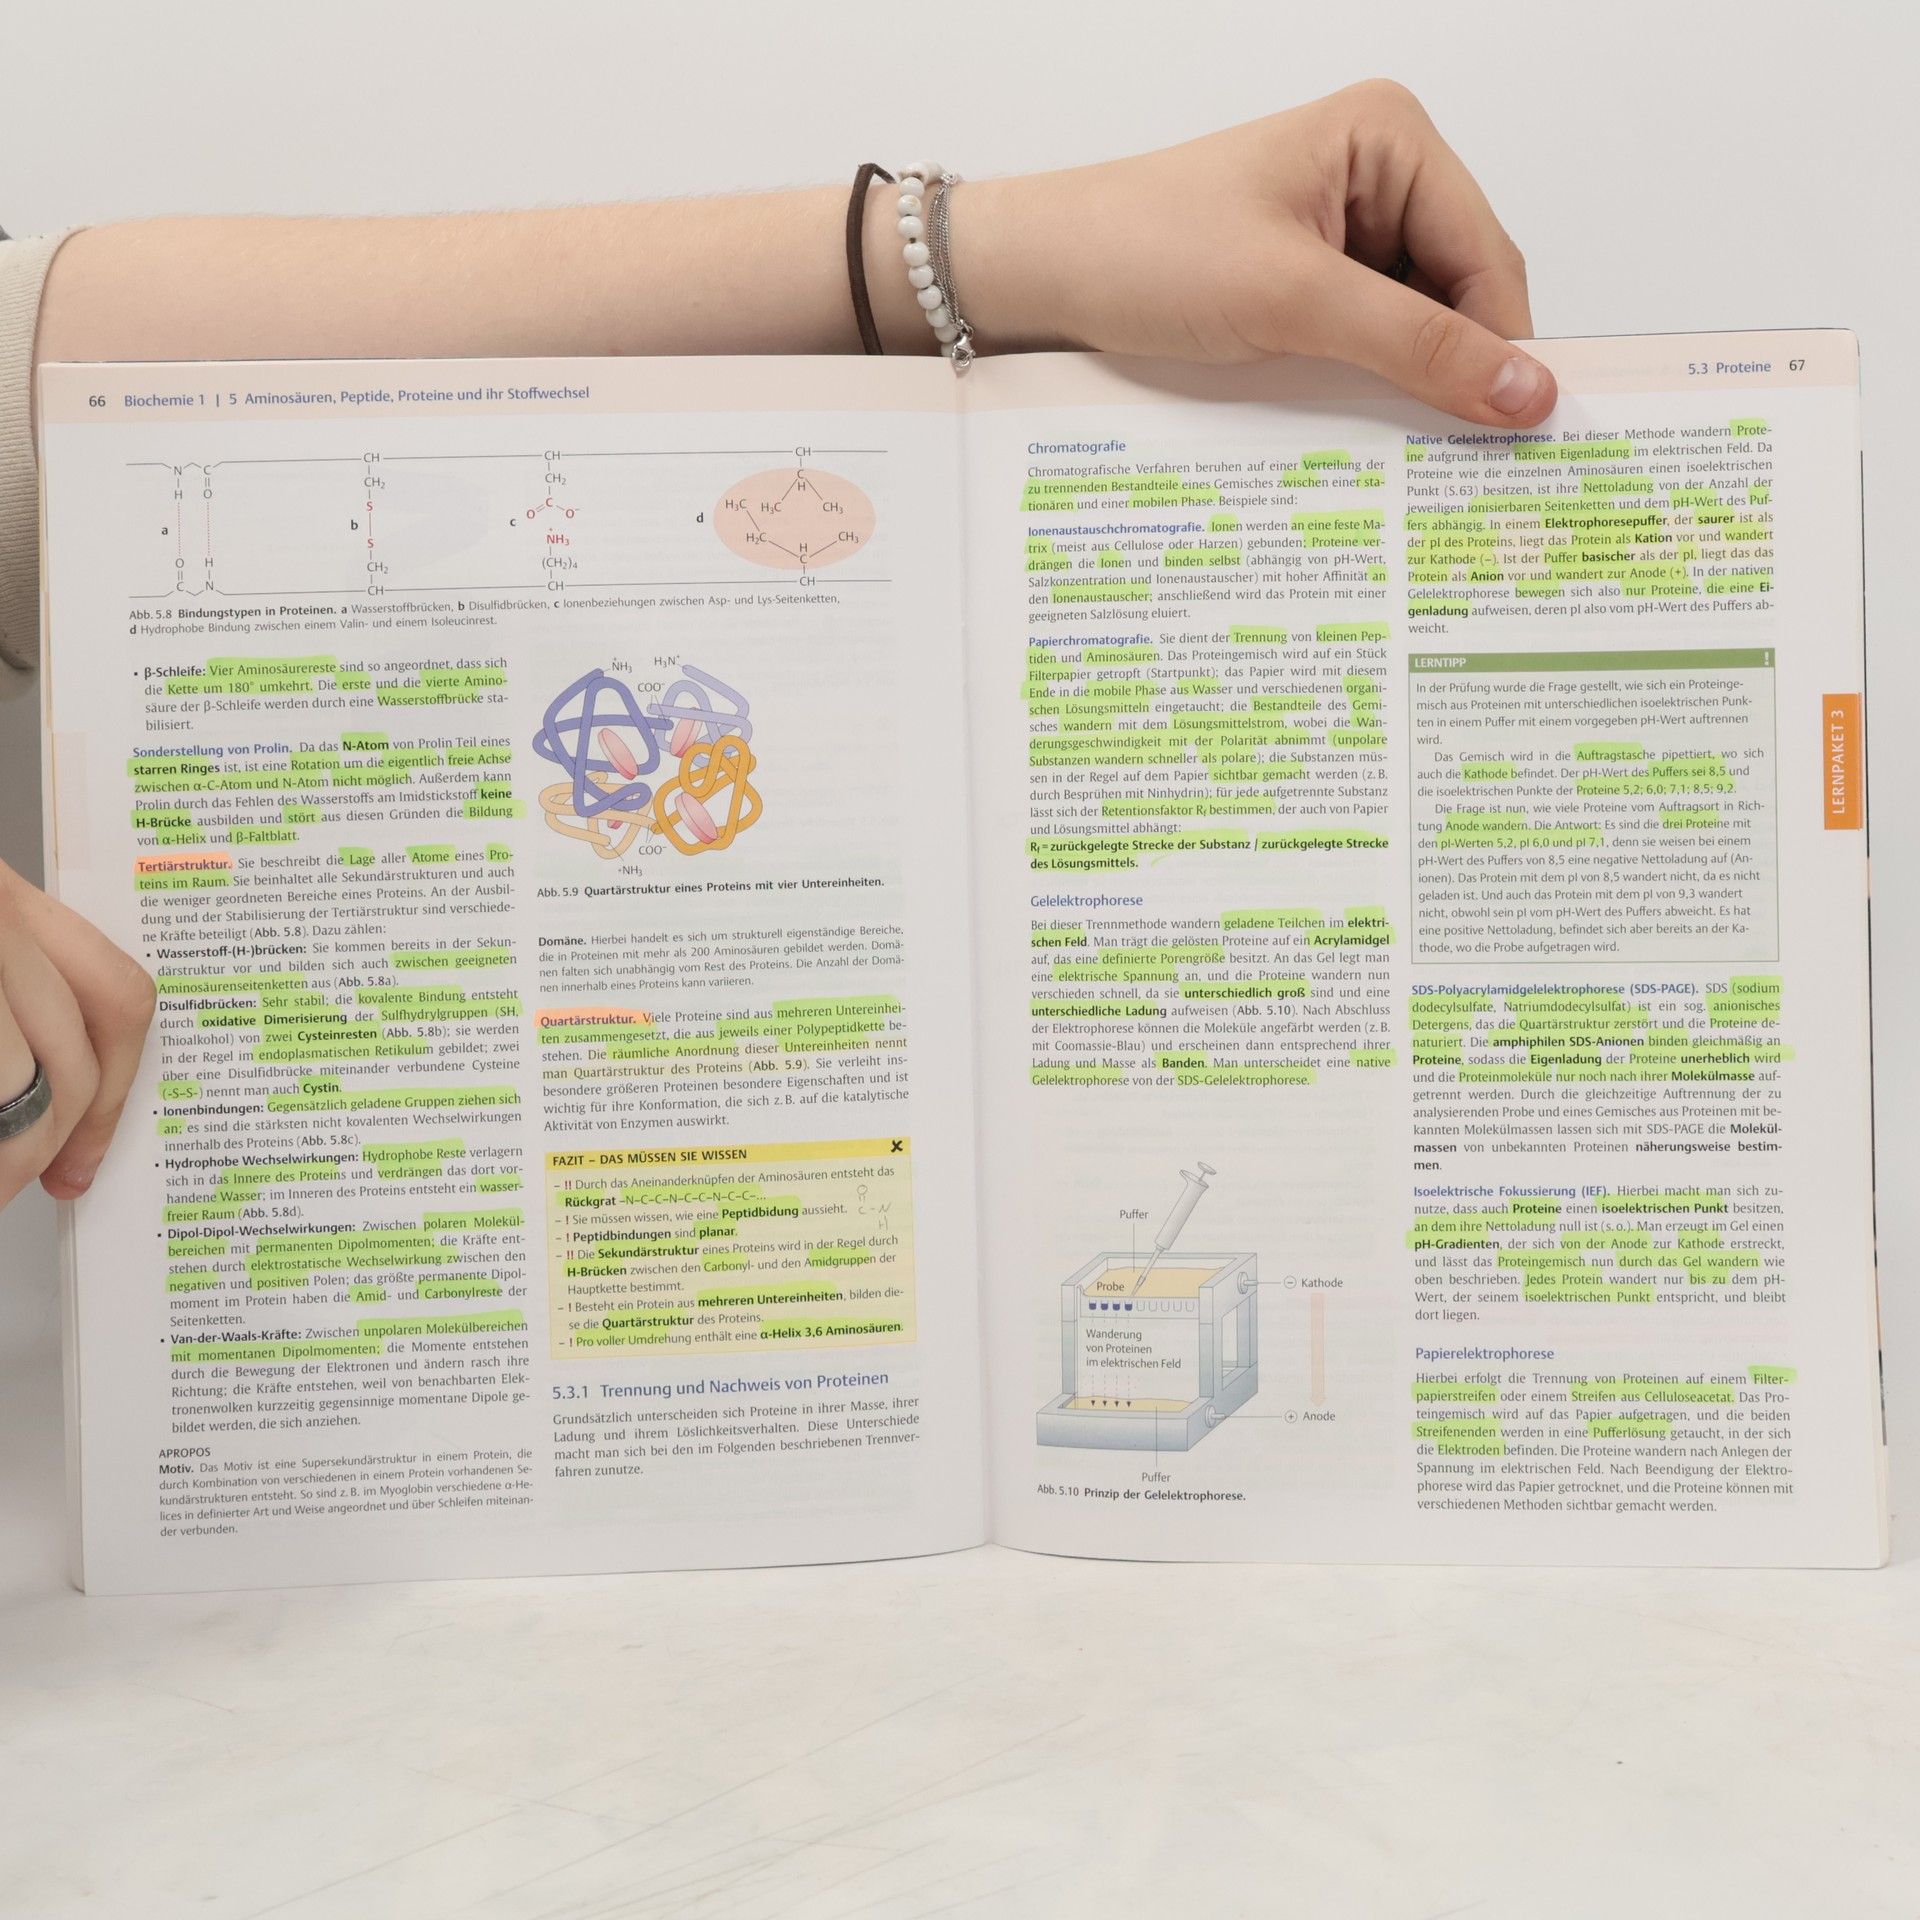 66 Biochemie 1 | 5 Aminosäuren, Peptide, Proteine und ihr Stoffwechsel
Abb. 5.8 Bindungstypen in Proteinen. a Wasserstoffbrücken, b Disulfidbrücken, c Ionenbeziehungen zwischen Asp- und Lys-Seitenketten,
d Hydrophobe Bindung zwischen einem Valin- und einem Isoleucinrest.
▪ β-Schleife: Vier Aminosäurereste sind so angeordnet, dass sich
die Kette um 180° umkehrt. Die erste und die vierte Amino-
säure der β-Schleife werden durch eine Wasserstoffbrücke sta-
bilisiert.
Sonderstellung von Prolin. Da das N-Atom von Prolin Teil eines
starren Ringes ist, ist eine Rotation um die eigentlich freie Achse
zwischen α-C-Atom und N-Atom nicht möglich. Außerdem kann
Prolin durch das Fehlen des Wasserstoffs am Imidstickstoff keine
H-Brücke ausbilden und stört aus diesen Gründen die Bildung
von α-Helix und β-Faltblatt.
Tertiärstruktur. Sie beschreibt die Lage aller Atome eines Pro-
teins im Raum. Sie beinhaltet alle Sekundärstrukturen und auch
die weniger geordneten Bereiche eines Proteins. An der Ausbil-
dung und der Stabilisierung der Tertiärstruktur sind verschiede-
ne Kräfte beteiligt (Abb. 5.8). Dazu zählen:
▪ Wasserstoff-(H-)brücken: Sie kommen bereits in der Sekun-
därstruktur vor und bilden sich auch zwischen geeigneten
Aminosäurenseitenketten aus (Abb. 5.8a).
Disulfidbrücken: Sehr stabil; die kovalente Bindung entsteht
durch oxidative Dimerisierung der Sulfhydrylgruppen (SH,
Thioalkohol) von zwei Cysteinresten (Abb. 5.8b); sie werden
in der Regel im endoplasmatischen Retikulum gebildet; zwei
über eine Disulfidbrücke miteinander verbundene Cysteine
(-S–S-) nennt man auch Cystin.
▪ Ionenbindungen: Gegensätzlich geladene Gruppen ziehen sich
an; es sind die stärksten nicht kovalenten Wechselwirkungen
innerhalb des Proteins (Abb. 5.8c).
▪ Hydrophobe Wechselwirkungen: Hydrophobe Reste verlagern
sich in das Innere des Proteins und verdrängen das dort vor-
handene Wasser; im Inneren des Proteins entsteht ein wasser-
freier Raum (Abb. 5.8d).
▪ Dipol-Dipol-Wechselwirkungen: Zwischen polaren Molekül-
bereichen mit permanenten Dipolmomenten; die Kräfte ent-
stehen durch elektrostatische Wechselwirkung zwischen den
negativen und positiven Polen; das größte permanente Dipol-
moment im Protein haben die Amid- und Carbonylreste der
Seitenketten.
▪ Van-der-Waals-Kräfte: Zwischen unpolaren Molekülbereichen
mit momentanen Dipolmomenten; die Momente entstehen
durch die Bewegung der Elektronen und ändern rasch ihre
Richtung; die Kräfte entstehen, weil von benachbarten Elek-
tronenwolken kurzzeitig gegensinnige momentane Dipole ge-
bildet werden, die sich anziehen.
APROPOS
Motiv. Das Motiv ist eine Supersekundärstruktur in einem Protein, die
durch Kombination von verschiedenen in einem Protein vorhandenen Se-
kundärstrukturen entsteht. So sind z. B. im Myoglobin verschiedene α-He-
lices in definierter Art und Weise angeordnet und über Schleifen miteinan-
der verbunden.
Abb. 5.9 Quartärstruktur eines Proteins mit vier Untereinheiten.
Domäne. Hierbei handelt es sich um strukturell eigenständige Bereiche,
die in Proteinen mit mehr als 200 Aminosäuren gebildet werden. Domä-
nen falten sich unabhängig vom Rest des Proteins. Die Anzahl der Domä-
nen innerhalb eines Proteins kann variieren.
Quartärstruktur. Viele Proteine sind aus mehreren Untereinhei-
ten zusammengesetzt, die aus jeweils einer Polypeptidkette be-
stehen. Die räumliche Anordnung dieser Untereinheiten nennt
man Quartärstruktur des Proteins (Abb. 5.9). Sie verleiht ins-
besondere größeren Proteinen besondere Eigenschaften und ist
wichtig für ihre Konformation, die sich z. B. auf die katalytische
Aktivität von Enzymen auswirkt.
FAZIT – DAS MÜSSEN SIE WISSEN
– !! Durch das Aneinanderknüpfen der Aminosäuren entsteht das
Rückgrat –N–C–C–N–C–C–N–C–C–...
– ! Sie müssen wissen, wie eine Peptidbidung aussieht.
– ! Peptidbindungen sind planar.
– !! Die Sekundärstruktur eines Proteins wird in der Regel durch
H-Brücken zwischen den Carbonyl- und den Amidgruppen der
Hauptkette bestimmt.
– ! Besteht ein Protein aus mehreren Untereinheiten, bilden die-
se die Quartärstruktur des Proteins.
– ! Pro voller Umdrehung enthält eine α-Helix 3,6 Aminosäuren.
5.3.1 Trennung und Nachweis von Proteinen
Grundsätzlich unterscheiden sich Proteine in ihrer Masse, ihrer
Ladung und ihrem Löslichkeitsverhalten. Diese Unterschiede
macht man sich bei den im Folgenden beschriebenen Trennver-
fahren zunutze.
5.3 Proteine 67
Chromatografie
Chromatografische Verfahren beruhen auf einer Verteilung der
zu trennenden Bestandteile eines Gemisches zwischen einer sta-
tionären und einer mobilen Phase. Beispiele sind:
Ionenaustauschchromatografie. Ionen werden an eine feste Ma-
trix (meist aus Cellulose oder Harzen) gebunden; Proteine ver-
drängen die Ionen und binden selbst (abhängig von pH-Wert,
Salzkonzentration und Ionenaustauscher) mit hoher Affinität an
den Ionenaustauscher; anschließend wird das Protein mit einer
geeigneten Salzlösung eluiert.
Papierchromatografie. Sie dient der Trennung von kleinen Pep-
tiden und Aminosäuren. Das Proteingemisch wird auf ein Stück
Filterpapier getropft (Startpunkt); das Papier wird mit diesem
Ende in die mobile Phase aus Wasser und verschiedenen organi-
schen Lösungsmitteln eingetaucht; die Bestandteile des Gemi-
sches wandern mit dem Lösungsmittelstrom, wobei die Wan-
derungsgeschwindigkeit mit der Polarität abnimmt (unpolare
Substanzen wandern schneller als polare); die Substanzen müs-
sen in der Regel auf dem Papier sichtbar gemacht werden (z. B.
durch Besprühen mit Ninhydrin); für jede aufgetrennte Substanz
lässt sich der Retentionsfaktor Rf bestimmen, der auch von Papier
und Lösungsmittel abhängt:
Rf = zurückgelegte Strecke der Substanz / zurückgelegte Strecke
des Lösungsmittels.
Gelelektrophorese
Bei dieser Trennmethode wandern geladene Teilchen im elektri-
schen Feld. Man trägt die gelösten Proteine auf ein Acrylamidgel
auf, das eine definierte Porengröße besitzt. An das Gel legt man
eine elektrische Spannung an, und die Proteine wandern nun
verschieden schnell, da sie unterschiedlich groß sind und eine
unterschiedliche Ladung aufweisen (Abb. 5.10). Nach Abschluss
der Elektrophorese können die Moleküle angefärbt werden (z. B.
mit Coomassie-Blau) und erscheinen dann entsprechend ihrer
Ladung und Masse als Banden. Man unterscheidet eine native
Gelelektrophorese von der SDS-Gelelektrophorese.
Puffer
Probe
Kathode
Wanderung
von Proteinen
im elektrischen Feld
Anode
Puffer
Abb. 5.10 Prinzip der Gelelektrophorese.
Native Gelelektrophorese. Bei dieser Methode wandern Prote-
ine aufgrund ihrer nativen Eigenladung im elektrischen Feld. Da
Proteine wie die einzelnen Aminosäuren einen isoelektrischen
Punkt (S. 63) besitzen, ist ihre Nettoladung von der Anzahl der
jeweiligen ionisierbaren Seitenketten und dem pH-Wert des Puf-
fers abhängig. In einem Elektrophoresepuffer, der saurer ist als
der pI des Proteins, liegt das Protein als Kation vor und wandert
zur Kathode (–). Ist der Puffer basischer als der pI, liegt das das
Protein als Anion vor und wandert zur Anode (+). In der nativen
Gelelektrophorese bewegen sich also nur Proteine, die eine Ei-
genladung aufweisen, deren pI also vom pH-Wert des Puffers ab-
weicht.
LERNTIPP !
In der Prüfung wurde die Frage gestellt, wie sich ein Proteinge-
misch aus Proteinen mit unterschiedlichen isoelektrischen Punk-
ten in einem Puffer mit einem vorgegeben pH-Wert auftrennen
wird.
Das Gemisch wird in die Auftragstasche pipettiert, wo sich
auch die Kathode befindet. Der pH-Wert des Puffers sei 8,5 und
die isoelektrischen Punkte der Proteine 5,2; 6,0; 7,1; 8,5; 9,2.
Die Frage ist nun, wie viele Proteine vom Auftragsort in Rich-
tung Anode wandern. Die Antwort: Es sind die drei Proteine mit
den pI-Werten 5,2, pI 6,0 und pI 7,1, denn sie weisen bei einem
pH-Wert des Puffers von 8,5 eine negative Nettoladung auf (An-
ionen). Das Protein mit dem pI von 8,5 wandert nicht, da es nicht
geladen ist. Und auch das Protein mit dem pI von 9,3 wandert
nicht, obwohl sein pI vom pH-Wert des Puffers abweicht. Es hat
eine positive Nettoladung, befindet sich aber bereits an der Ka-
thode, wo die Probe aufgetragen wird.
SDS-Polyacrylamidgelelektrophorese (SDS-PAGE). SDS (sodium
dodecylsulfate, Natriumdodecylsulfat) ist ein sog. anionisches
Detergens, das die Quartärstruktur zerstört und die Proteine de-
naturiert. Die amphiphilen SDS-Anionen binden gleichmäßig an
Proteine, sodass die Eigenladung der Proteine unerheblich wird
und die Proteinmoleküle nur noch nach ihrer Molekülmasse auf-
getrennt werden. Durch die gleichzeitige Auftrennung der zu
analysierenden Probe und eines Gemisches aus Proteinen mit be-
kannten Molekülmassen lassen sich mit SDS-PAGE die Molekül-
massen von unbekannten Proteinen näherungsweise bestim-
men.
Isoelektrische Fokussierung (IEF). Hierbei macht man sich zu-
nutze, dass auch Proteine einen isoelektrischen Punkt besitzen,
an dem ihre Nettoladung null ist (s. o.). Man erzeugt im Gel einen
pH-Gradienten, der sich von der Anode zur Kathode erstreckt,
und lässt das Proteingemisch nun durch das Gel wandern wie
oben beschrieben. Jedes Protein wandert nur bis zu dem pH-
Wert, der seinem isoelektrischen Punkt entspricht, und bleibt
dort liegen.
Papierelektrophorese
Hierbei erfolgt die Trennung von Proteinen auf einem Filter-
papierstreifen oder einem Streifen aus Celluloseacetat. Das Pro-
teingemisch wird auf das Papier aufgetragen, und die beiden
Streifenenden werden in eine Pufferlösung getaucht, in der sich
die Elektroden befinden. Die Proteine wandern nach Anlegen der
Spannung im elektrischen Feld. Nach Beendigung der Elektro-
phorese wird das Papier getrocknet, und die Proteine können mit
verschiedenen Methoden sichtbar gemacht werden.
LERNPAKET 3